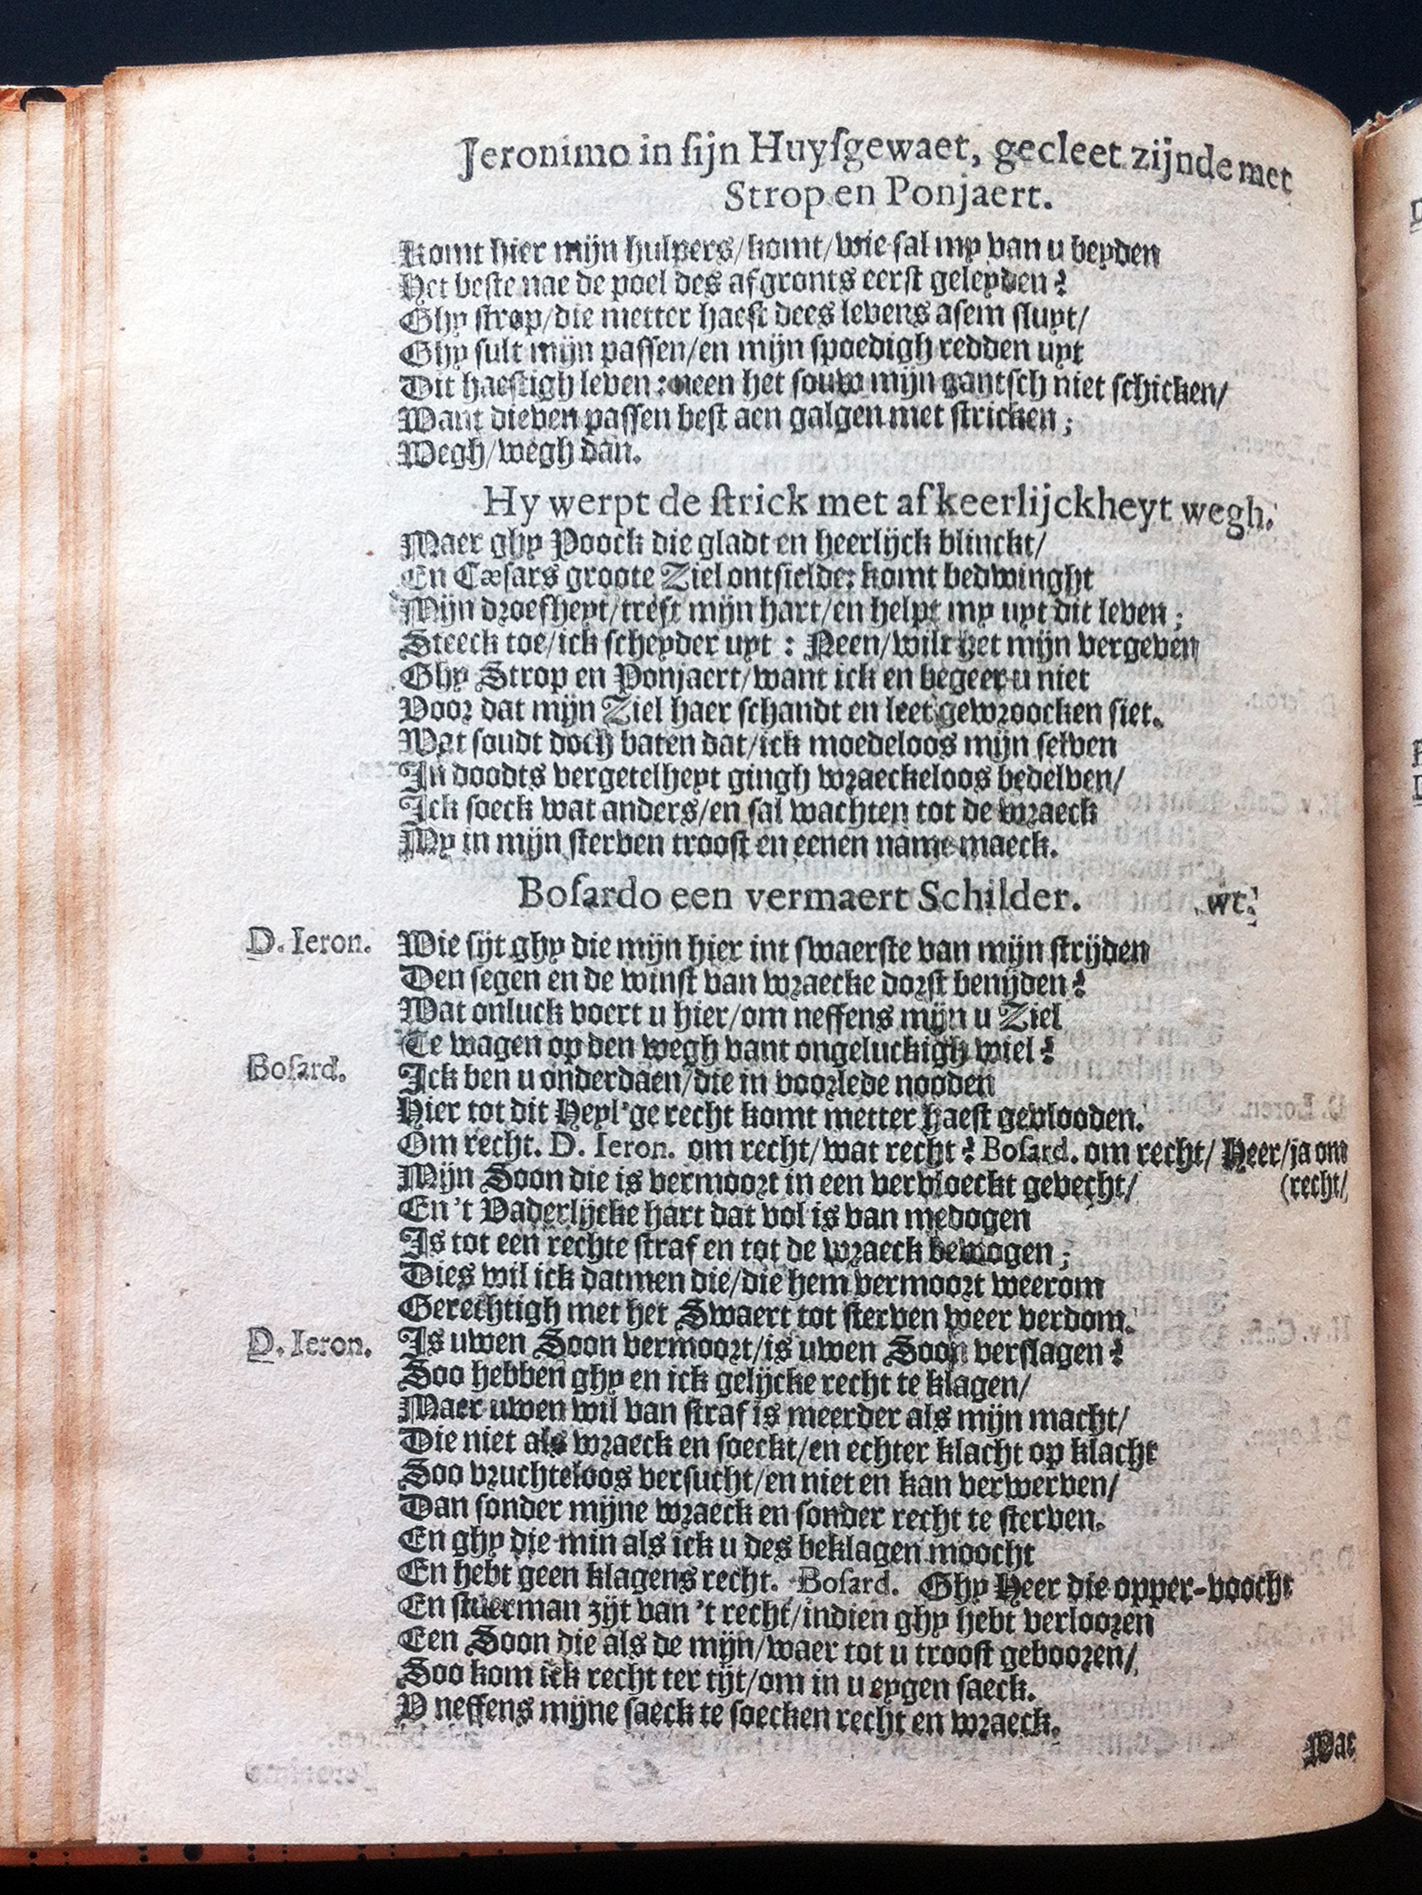 Jeronimo in sijn Huysgewaet, gecleet zijnde met
Strop en Ponjaert.
Komt hier mijn hulpers/komt/wie sal my van u beyden
Het beste nae de poel des afgronts eerst geleyden?
Ghy strop/die metter haest dees levens asem sluyt/
Ghy sult mijn passen/en mijn spoedigh redden uyt
Dit haestigh leven: neen het souw mijn gantsch niet schicken/
Want dieven passen best aen galgen met stricken;
Wegh/wegh dan.
Hy werpt de strick met afkeerlijckheyt wegh.
Maer ghy Poock die gladt en heerlijck blinckt/
En Cæsars groote Ziel ontsielde: komt bedwinght
Mijn droefheyt/trest mijn hart/en helpt my uyt dit leven;
Steeck toe/ick scheyder uyt: Neen/wilt het mijn vergeven
Ghy Strop en Ponjaert/want ick en begeer u niet
Voor dat mijn Ziel haer schandt en leet gewroocken siet.
Wat soudt doch baten dat/ick moedeloos mijn selven
In doodts vergetelheyt gingh wraeckeloos bedelven/
Ick soeck wat anders/en sal wachten tot de wraeck
My in mijn sterven troost en eenen name maeck.
Bosardo een vermaert Schilder. wt.
D. Ieron. Wie sijt ghy die mijn hier int swaerste van mijn strijden
Den segen en de winst van wraecke dorst benijden?
Wat onluck voert u hier/om neffens mijn u Ziel
Te wagen op den wegh vant ongeluckigh wiel?
Bosard. Ick ben u onderdaen/die in voorlede nooden
Hier tot dit Heyl'ge recht komt metter haest gevlooden.
Om recht. D. Ieron. om recht/wat recht? Bosard. om recht/Heer/ja om
(recht/
Mijn Soon die is vermoort in een vervloeckt gevecht/
En 't Vaderlijcke hart dat vol is van medogen
Is tot een rechte straf en tot de wraeck bewogen;
Dies wil ick datmen die/die hem vermoort weerom
Gerechtigh met het Swaert tot sterven weer verdom.
D. Ieron. Is uwen Soon vermoort/is uwen Soon verslagen?
Soo hebben ghy en ick gelijcke recht te klagen/
Maer uwen wil van straf is meerder als mijn macht/
Die niet als wraeck en soeckt/en echter klacht op klacht
Soo vruchteloos versucht/en niet en kan verwerven/
Dan sonder mijne wraeck en sonder recht te sterven.
En ghy die min als ick u des beklagen moocht
En hebt geen klagens recht. Bosard. Ghy Heer die opper-voocht
En stuerman zijt van 't recht/indien ghy hebt verloozen
Een Soon die als de mijn/waer tot u troost geboozen/
Soo kom ick recht ter tijt/om in u eygen saeck.
V neffens mijne saeck te soecken recht en wraeck.
Wae